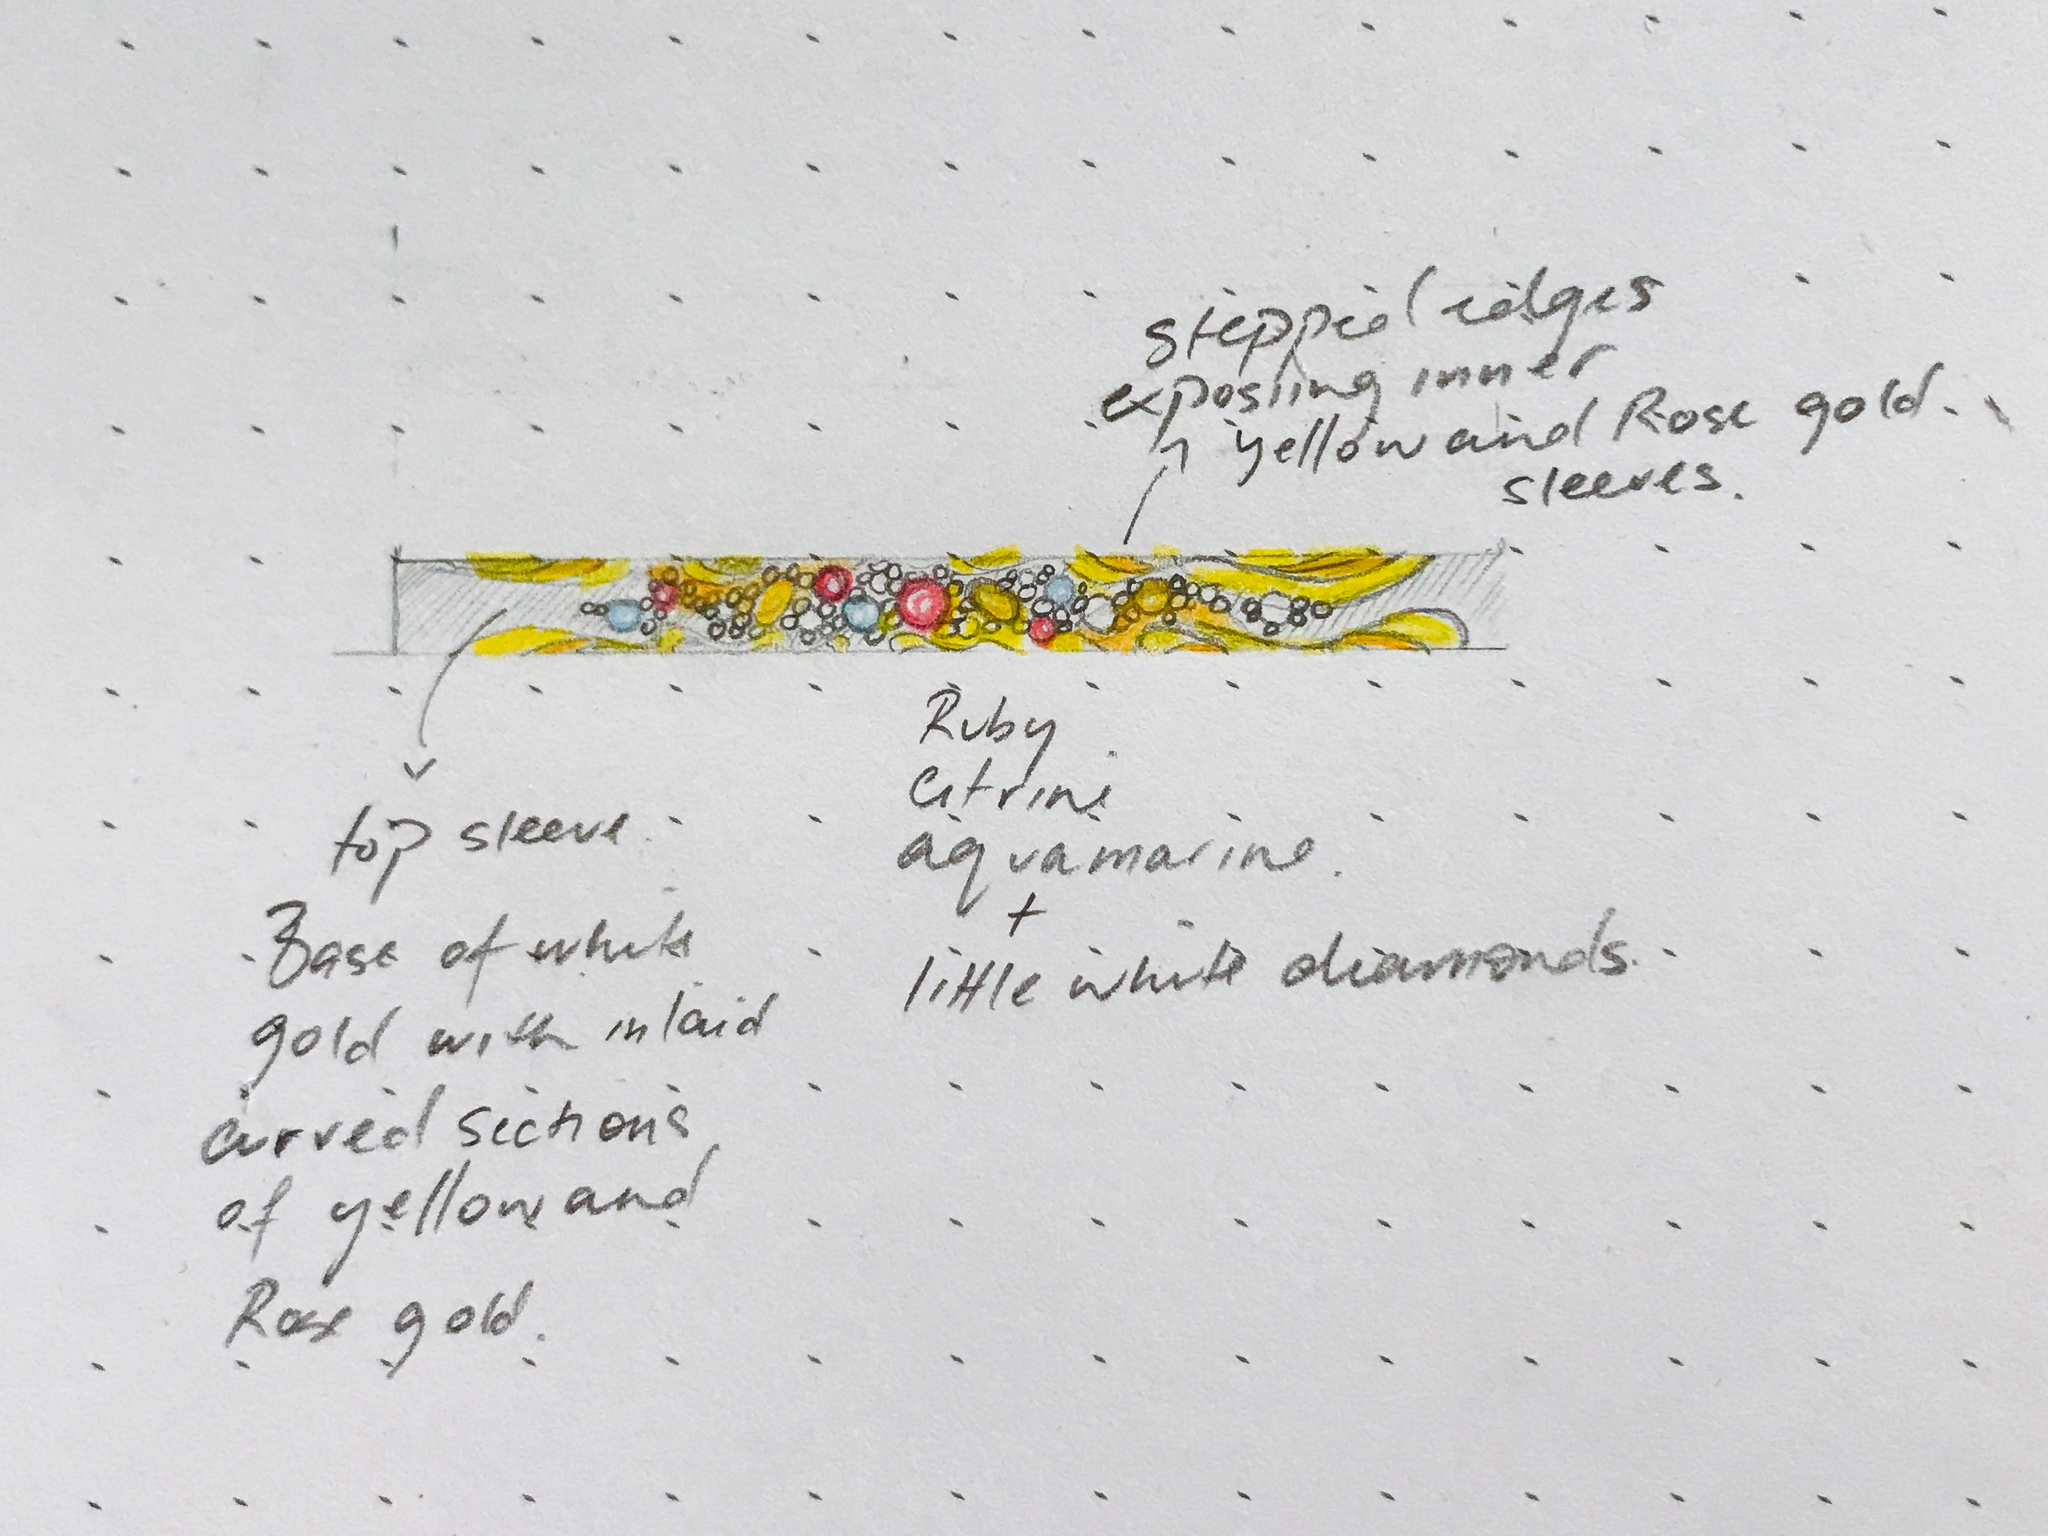 stepped edges
exposing inner
yellow and Rose gold.
sleeves.
top sleeve.
Base of white
gold with inlaid
curved sections
of yellow and
Rose gold.
Ruby
citrine
aquamarine.
+
little white diamonds.